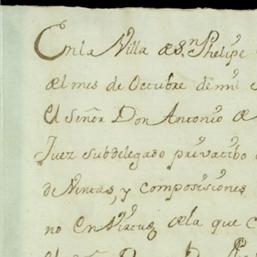 En la Villa de S.n Phelipe
del mes de Octubre de mil S
El Señor Don Antonio de
Juez subdelegado privatibo
de Ventas, y composisiones
no En Virtud de la que C